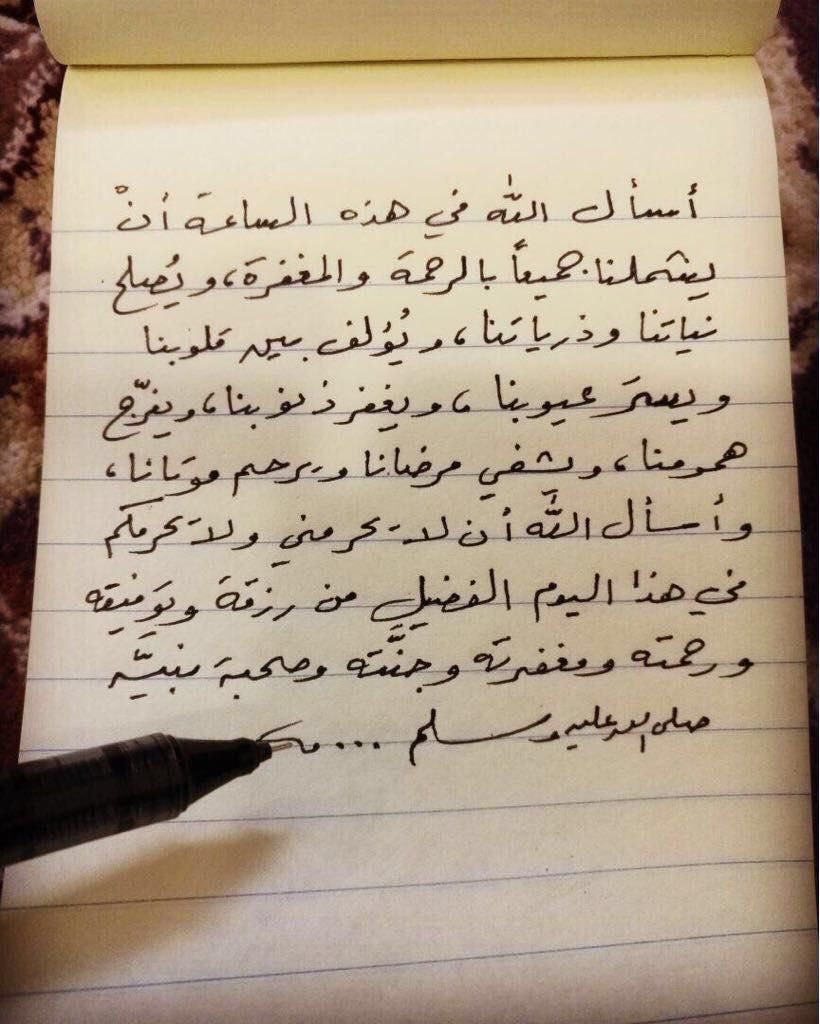 أسأل الله في هذه الساعة أنْ
يشملنا جميعاً بالرحمة والمغفرة، ويُصلح
نياتنا وذرياتنا، ويُؤلف بين قلوبنا
ويستر عيوبنا، ويغفر ذنوبنا، ويفرّج
همومنا، ويشفي مرضانا ويرحم موتانا،
وأسأل الله أن لا يحرمني ولا يحرمكم
في هذا اليوم الفضيل من رزقة وتوفيقه
ورحمته ومغفرته وجنَّته وصحبة نبيَّه
صلى الله عليه وسلم ...